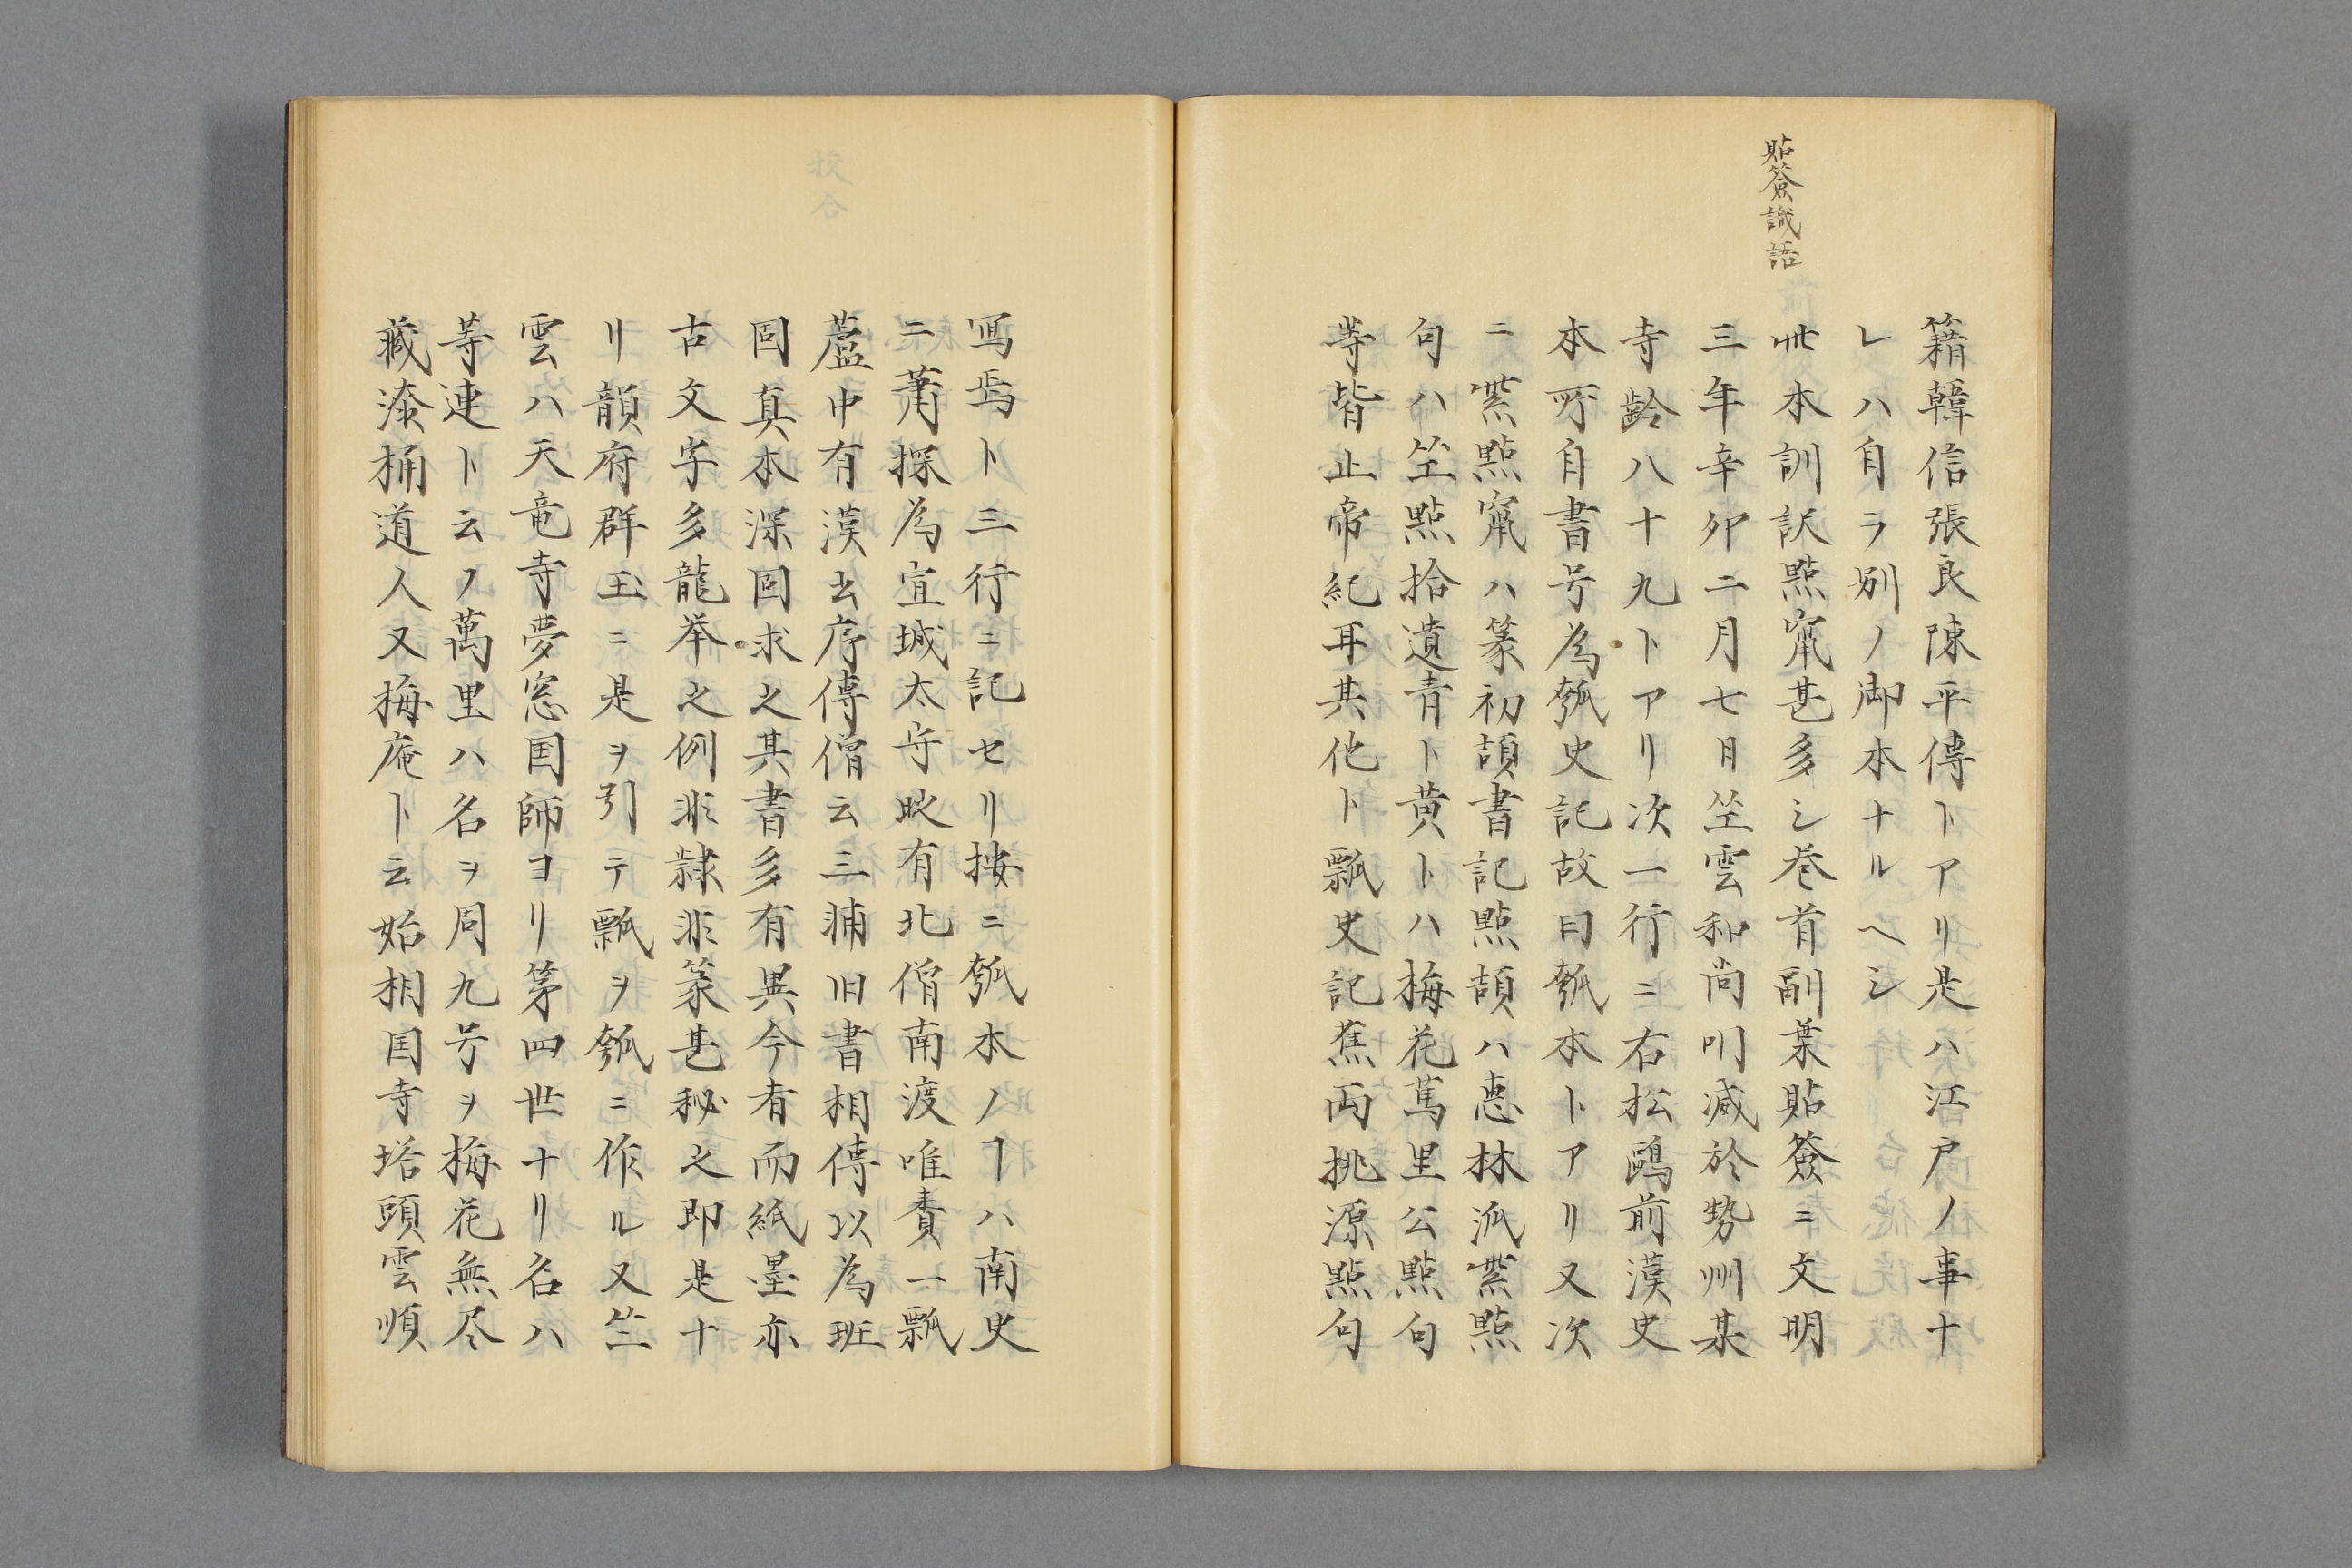 貼簽識語
籍韓信張良陳平傳トアリ是ハ江戸ノ事十
レハ自ラ別ノ御本ナルヘシ
此本訓訳點竄甚多シ巻首副葉貼簽ニ文明
三年辛卯二月七日竺雲和尚叫減於勢州某
寺齢八十九トアリ次一行ニ右松鷗前漢史
本所自書号為瓠史記故曰瓠本トアリ又次
ニ紫點竄ハ篆初頡書記點頡ハ恵林派紫點
句ハ竺點拾遺青ト黄トハ梅花萬里公點句
等皆止帝紀耳其他ト瓢史記蕉両挑源點句
寫焉ト三行ニ記セリ按ニ瓠本ノヿハ南史
ニ蕭探為宣城太守時有北僧南渡唯賷一瓢
蘆中有漢书序傳僧云三浦旧書相傳以為班
固真本深固求之其書多有異今者而紙墨亦
古文字多龍挙之例非隷非篆甚秘之即是十
リ韻府群玉ニ是ヲ引テ瓢ヲ瓠ニ作ル又竺
雲ハ天竜寺夢窓国師ヨリ第四世十リ名ハ
等連ト云ノ萬里ハ名ヲ周九号ヲ梅花無尽
蔵漆桶道人又梅庵ト云始相国寺塔頭雲順